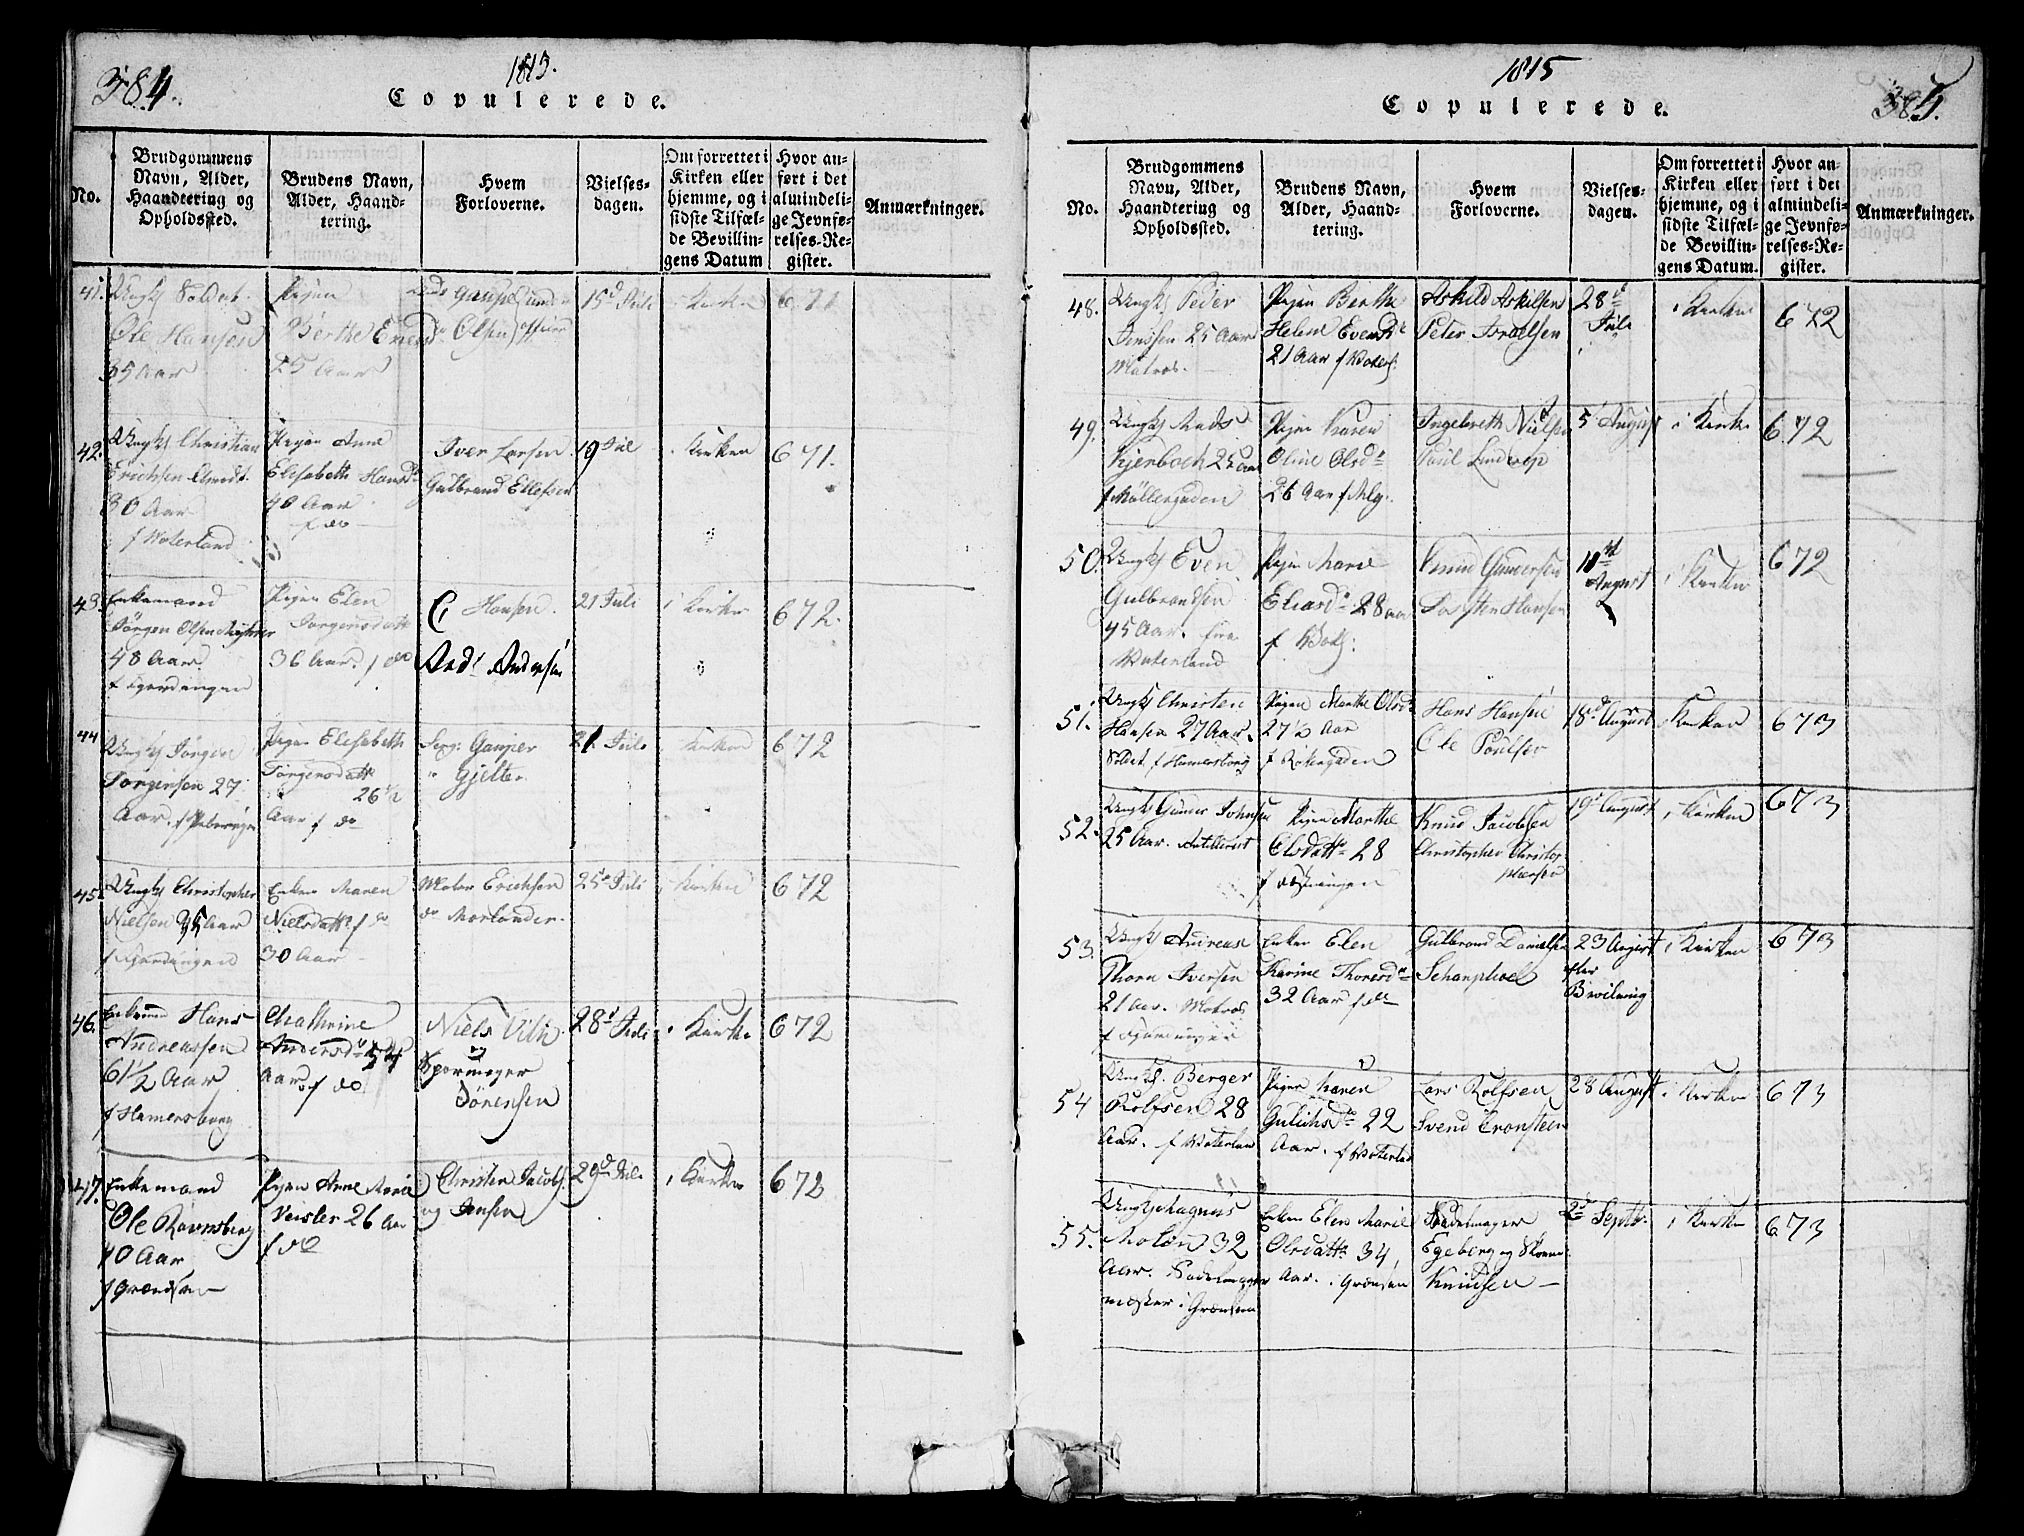 384.
1815.
Copulerede.
No.
Brudgommens
Navn, Alder,
Haandtering og
Opholdssted.
Brudens Navn,
Alder, Haand-
tering.
Hvem
Forloverne.
Vielses-
dagen.
Om forrettet i
Kirken eller
hjemme, og i
sidste Tilfæl-
de Bevillin-
gens Datum
Hvor an-
ført i det
almindeli-
ge Jevnfø-
relses-Re-
gister.
Anmærkninger.
41.
Ungk Soldat
Ole Hansen
35 Aar
Pigen
Berthe
25 Aar
Olsen
15d Juli
i Kirken
671
42.
Ungk Christian
Erichsen
30 Aar
f Waterland
Pigen Anne
Elisabeth Hansd
40 Aar
f do
Iver Larsen
Gulbrand Ellefsen
19 Jul
i Kirken
671.
43.
Enkemand
Jørgen Olsen
48 Aar
f Fjerdingen
Pigen Elen
Jørgensdatt
36 Aar. f do
C Hansen.
And Andersen
21 Juli
i Kirken
672.
44
Ungk Jørgen
Jørgensen 27
Aar. f
Pigen Elisabeth
Jørgensdatt
26 1/2
Aar f do
Serg: Gamper
" Gjelter
21 Juli
i Kirken
672
45.
Ungk Christopher
Nielsen 35 Aar
f Fjerdingen
Enken Maren
Nielsdatt f do
30 Aar
Erichsen
do Morlander.
25d Juli
i Kirken
672
46.
Enkemand Hans
Andreassen
61 1/2 Aar
f Hamersborg
Chathrine
Andersd 54
Aar f do
Niels
og
Spormager
Sørensen
28d Juli
i Kirken
672
47.
Enkemand
Ole Ravnsberg
40 Aar
f Grændsen
Pigen Anne Marie
Neisler 26 Aar
f do
Christen Jacobs
og Jensen
29d Juli
i Kirken
672
1815
Copulerede.
385.
No.
Brudgommens
Navn, Alder,
Haandtering og
Opholdssted.
Brudens Navn,
Alder, Haand-
tering.
Hvem
Forloverne.
Vielses-
dagen.
Om forrettet i
Kirken eller
hjemme, og i
sidste Tilfæl-
de Bevillin-
gens Datum.
Hvor an-
ført i det
almindeli-
ge Jevnfø-
relses-Re-
gister.
Anmærkninger.
48.
Ungk Peder
Jenssen 25 Aar
Matros.
Pigen Berthe
Helene Evensd
21 Aar f Waterl:
Askild Askilsen
Peter Israelsen
28d
Juli
i Kirken
672
49.
Ungk Mads
Kjerboch 25 Aar
f Møllergaden
Pigen Karen
Oline Olsd
26 Aar f Mlg.
Ingebreth Nielsen
Poul Lindrop
5 August
i Kirken
672
50.
Ungk Even
Gulbrandsen
45 Aar.
Waterland
Pigen Marie
Eliasd 28 Aar
f
Knud Gundersen
Torsten Hansen
11d
August
i Kirken
672
51.
Ungk Christen
Hansen 27 Aar.
Soldat f Hamersborg
Pigen Marthe Olsd
27 1/2 Aar
f
Hans Hansen
Ole Poulsen
18d August
i Kirken
673
52.
Ungk Gunder Johnsen
25 Aar. Artillerist
Pigen Marthe
Olsdatt 28
f
Knud Jacobsen
Christopher Christop
hersen
19d August
i Kirken
673
53.
Ungk Andreas
Thorn Iversen
21 Aar. Matros
f Fjerdingen
Enken Elen
Karine Thoresd
32 Aar f do
Gulbrand Danielsen
23 August
efter
Bevilning
i Kirken
673
54
Ungk. Berger
Rolfsen 28
Aar. f Waterland
Pigen Karen
Gulichsd 22
Aar. f Waterland
Lars Rolfsen
Svend Cronsteen
28 August
i Kirken
673
55.
Ungk Magnus
Molin 32
Aar. Sadelmager
mester i Grænsen
Enken Elen Marie
Olsdatt 34
Aar. i Grænsen
Sadelmager
Egeberg og
Knudsen
2d Septb.
i Kirken
673